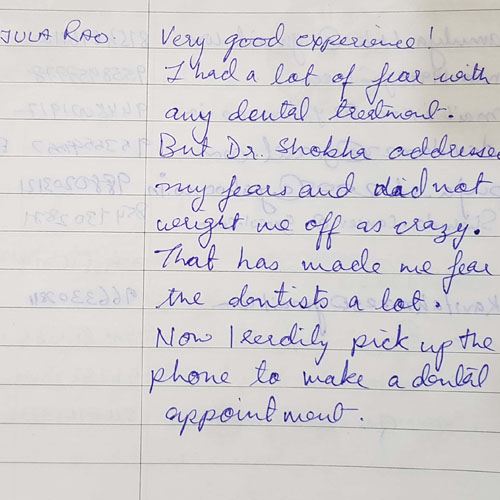 JULA RAO
Very good experience!
I had a lot of fear with
any dental treatment.
But Dr. Shobha addresse
my fears and did not
weight me off as crazy.
That has made me fear
the dentists a lot.
Now I readily pick up the
phone to make a dental
appointment.